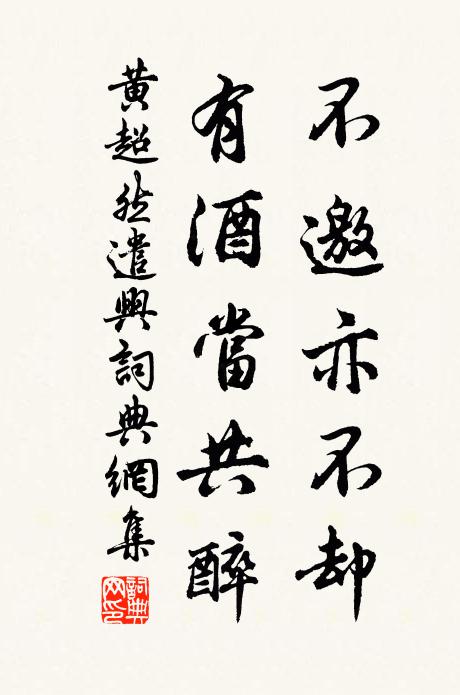 不邀亦不却
有酒當共醉
黄超然遣興詞典網集
詞典網印